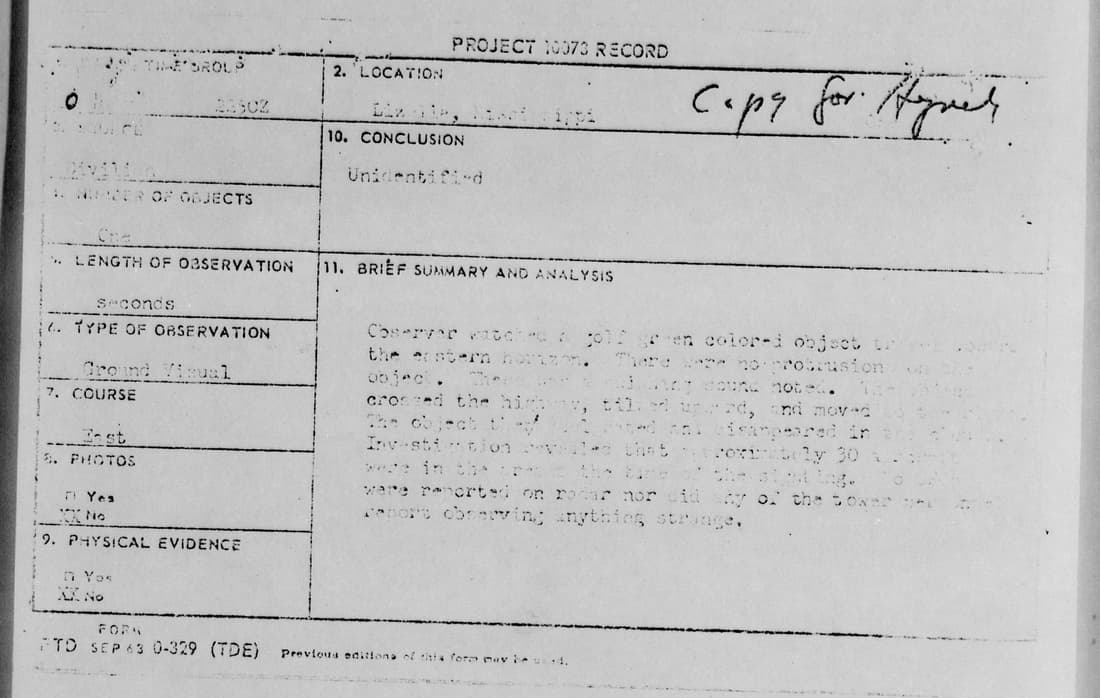 PROJECT 10073 RECORD
TIME GROUP
2. LOCATION
Copy for Hynek
10. CONCLUSION
Civilian
Unidentified
NUMBER OF OBJECTS
One
LENGTH OF OBSERVATION
11. BRIEF SUMMARY AND ANALYSIS
seconds
TYPE OF OBSERVATION
Observer watched a golf green colored object
the eastern horizon. There were no protrusion on the
Ground Visual
object. There was sound noted.
7. COURSE
crossed the highway, tilted upward, and moved
East
The object then and disappeared in the
Investigation revealed that approximately 30
8. PHOTOS
were in the area at the time of the sighting.
Yes
were reported on radar nor did any of the tower
XX No
report observing anything strange.
9. PHYSICAL EVIDENCE
Yes
XX No
FORM
FTD SEP 63 0-329 (TDE) Previous editions of this form may be used.